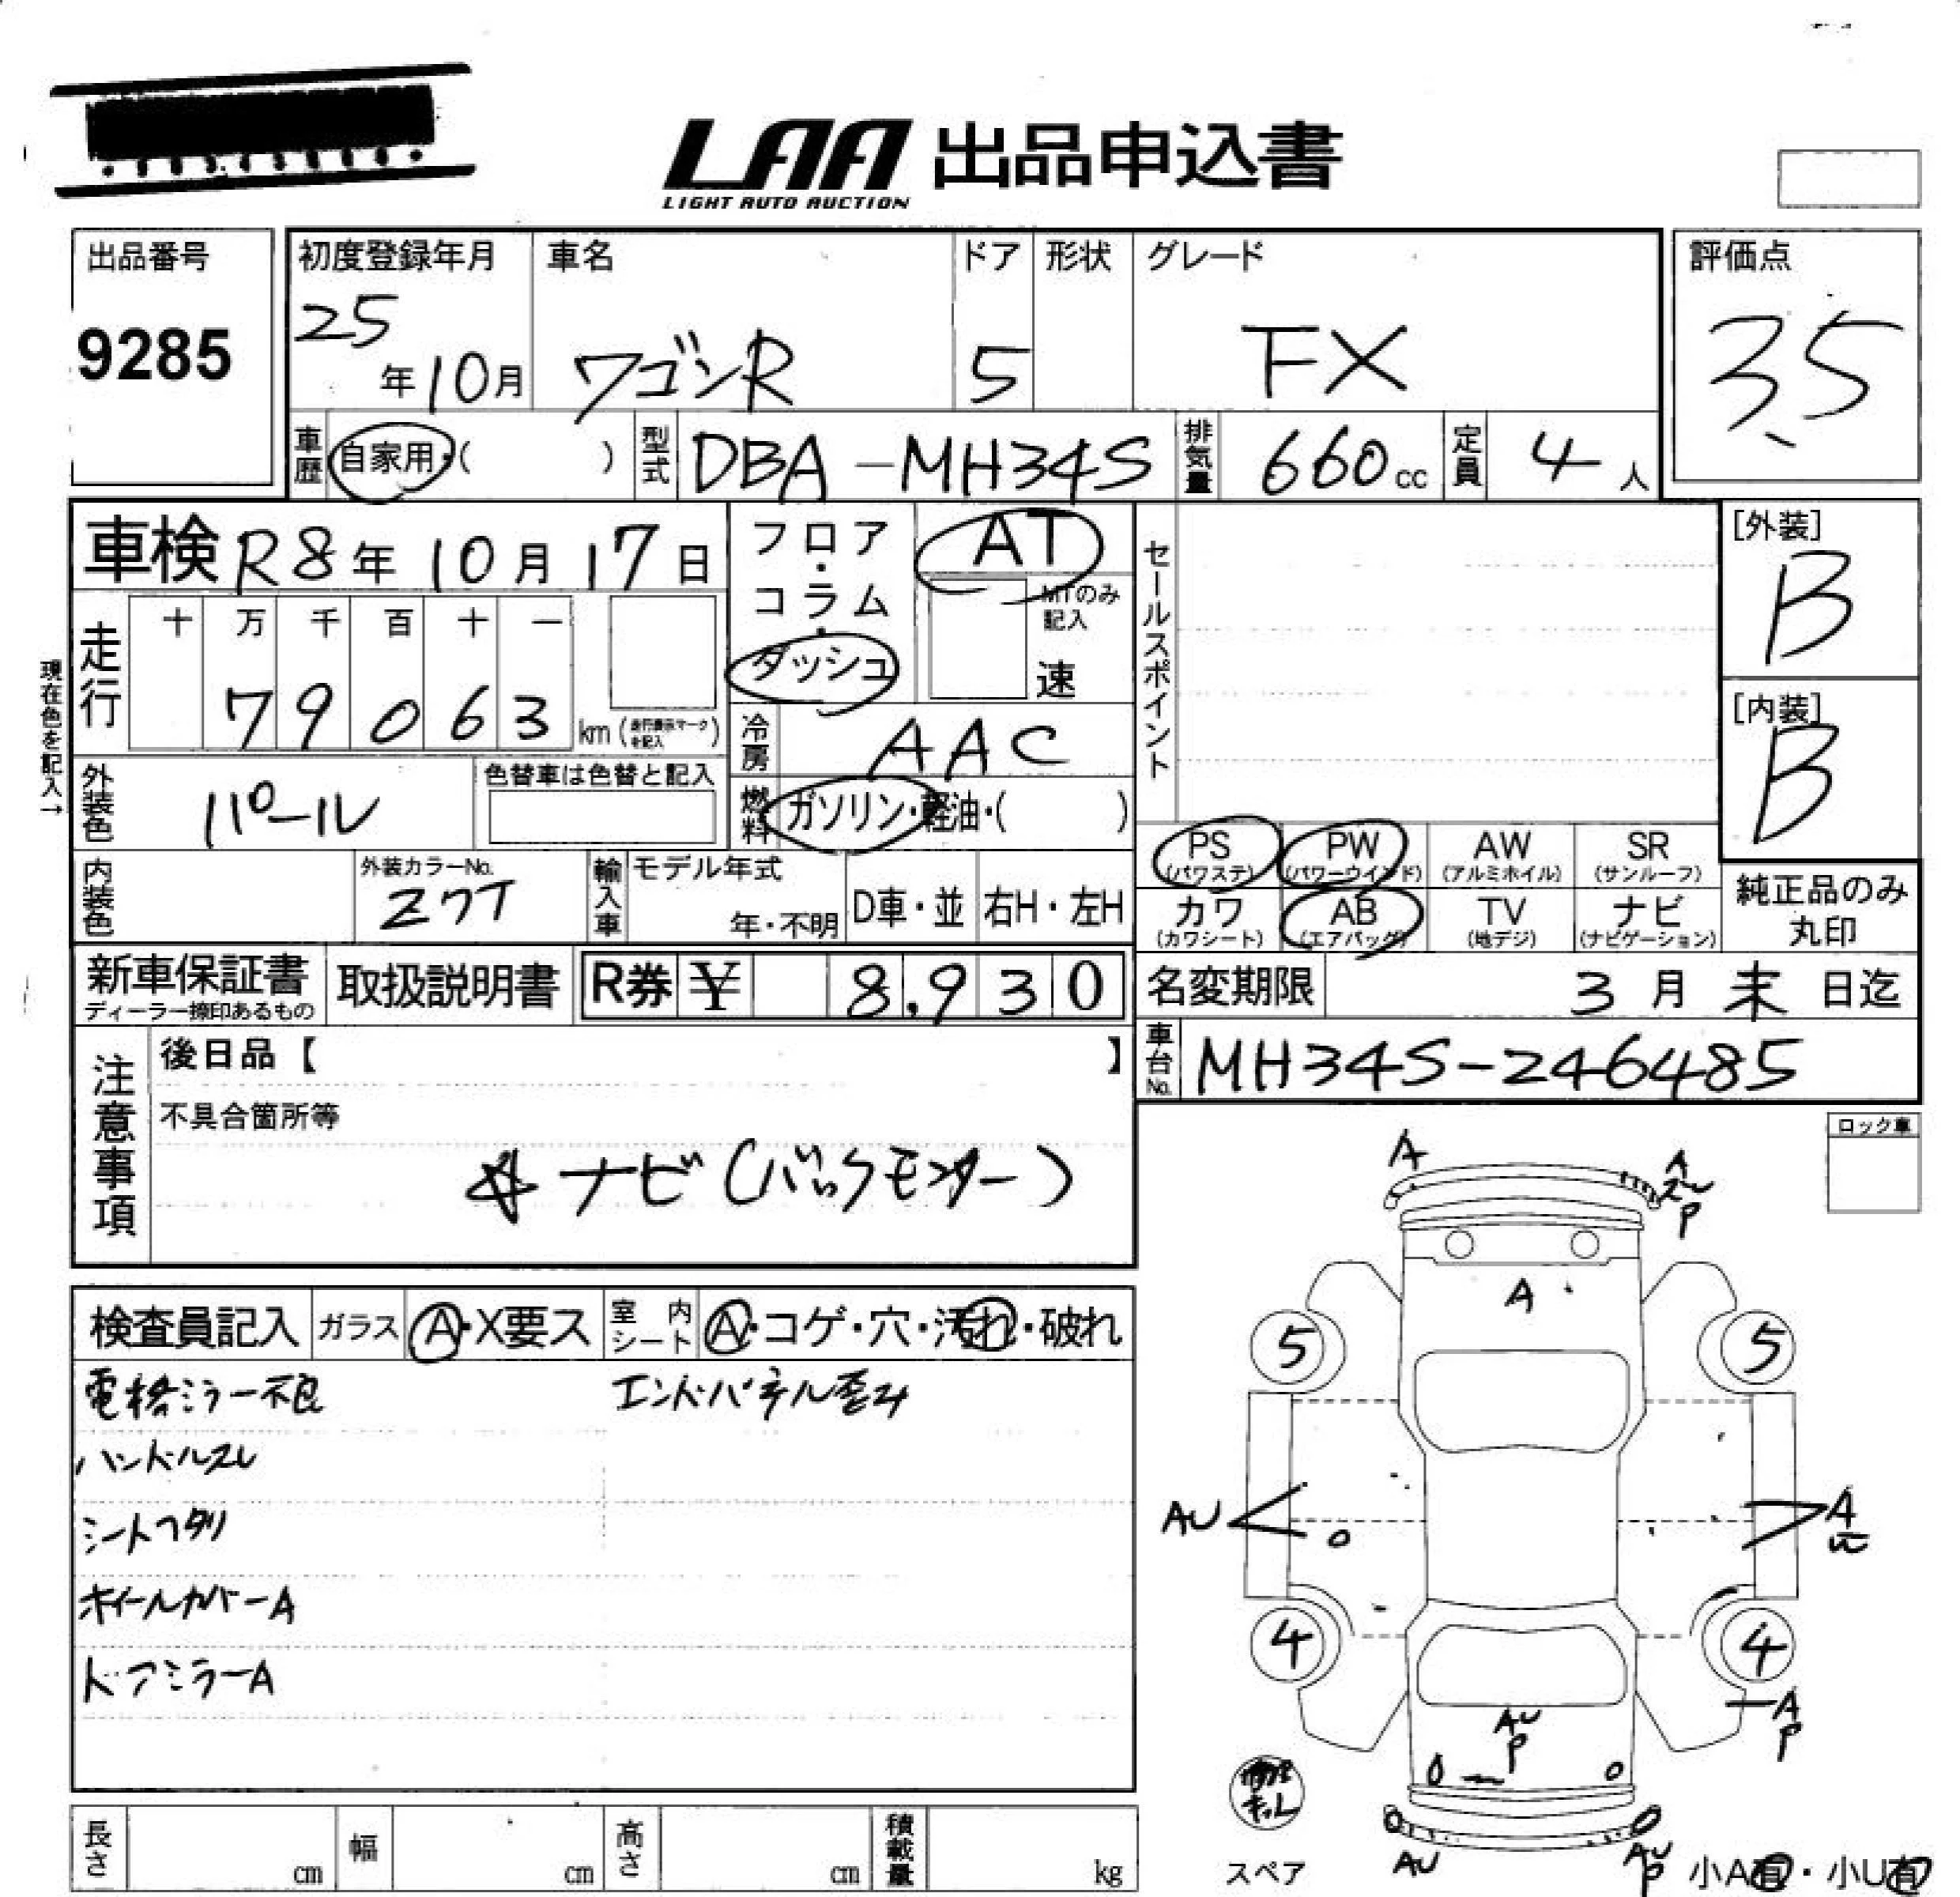 LAA 出品申込書
LIGHT AUTO AUCTION
出品番号
9285
初度登録年月
25年10月
車名
ワゴンR
ドア
5
形状
グレード
FX
評価点
3.5
車歴 自家用・( )
型式 DBA-MH34S
排気量 660cc
定員 4人
車検 R8年10月17日
走行 十 万 千 百 十 一
79063 km (走行表示マークを記入)
現在色を記入→
フロア・コラム・ダッシュ
AT
MTのみ記入
速
冷房 AAC
燃料 ガソリン・軽油・( )
外装色 パール
色替車は色替と記入
内装色
外装カラーNo.
Z7T
輸入車 モデル年式
年・不明
D車・並
右H・左H
セールスポイント
[外装]
B
[内装]
B
PS (パワステ)
PW (パワーウインド)
AW (アルミホイル)
SR (サンルーフ)
カワ (カワシート)
AB (エアバッグ)
TV (地デジ)
ナビ (ナビゲーション)
純正品のみ丸印
新車保証書
ディーラー捺印あるもの
取扱説明書
R券 ¥ 8,930
名変期限 3月末日迄
車台No. MH34S-246485
注意事項
後日品【 】
不具合箇所等
☆ナビ(バックモニター)
ロック車
検査員記入
ガラス A・X要ス
室内シート A・コゲ・穴・汚れ・破れ
電格ミラー不良
エンドパネル歪み
ハンドルスレ
シートヘタリ
ホイールカバーA
ドアミラーA
A
A
スレ
P
A
5
5
AU
A
U
4
4
A
P
AU
P
AU
AU
P
スペア
小A有・小U有
長さ cm
幅 cm
高さ cm
積載量 kg